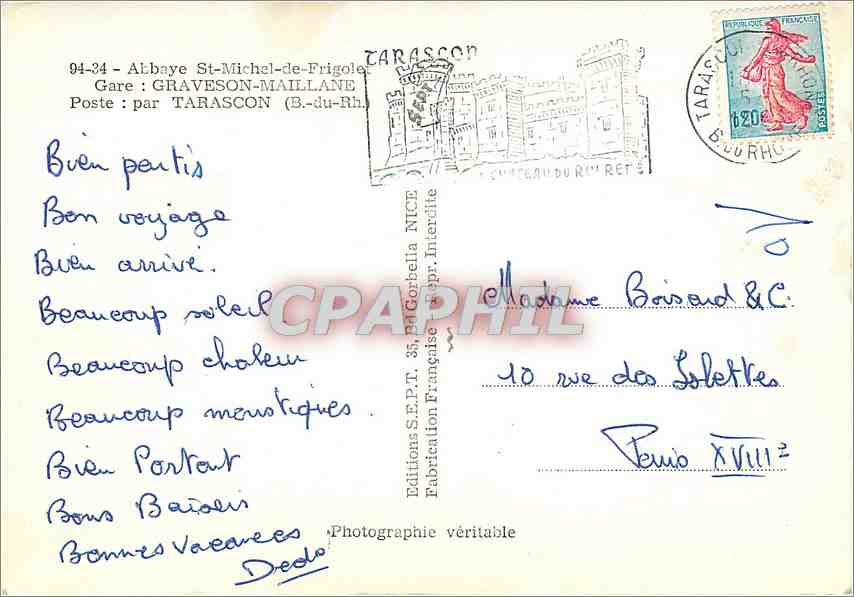 94-34 - Abbaye St-Michel-de-Frigolet
Gare : GRAVESON-MAILLANE
Poste : par TARASCON (B.-du-Rh.)
TARASCON
SEPT
CHATEAU DU ROI RENE
REPUBLIQUE FRANÇAISE
0,20
POSTES
TARASCON
B. DU RHONE
Bien partis
Bon voyage
Bien arrivé.
Beaucoup soleil
Beaucoup chaleur
Beaucoup moustiques.
Bien Portant
Bons Baisers
Bonnes Vacances
Dedo
Editions S.E.P.T. 35, Bd Gorbella NICE
Fabrication Française - Repr. Interdite
Madame Boisard & C.
10 rue des Islettes
Paris XVIIIe
Photographie véritable
CPAPHIL